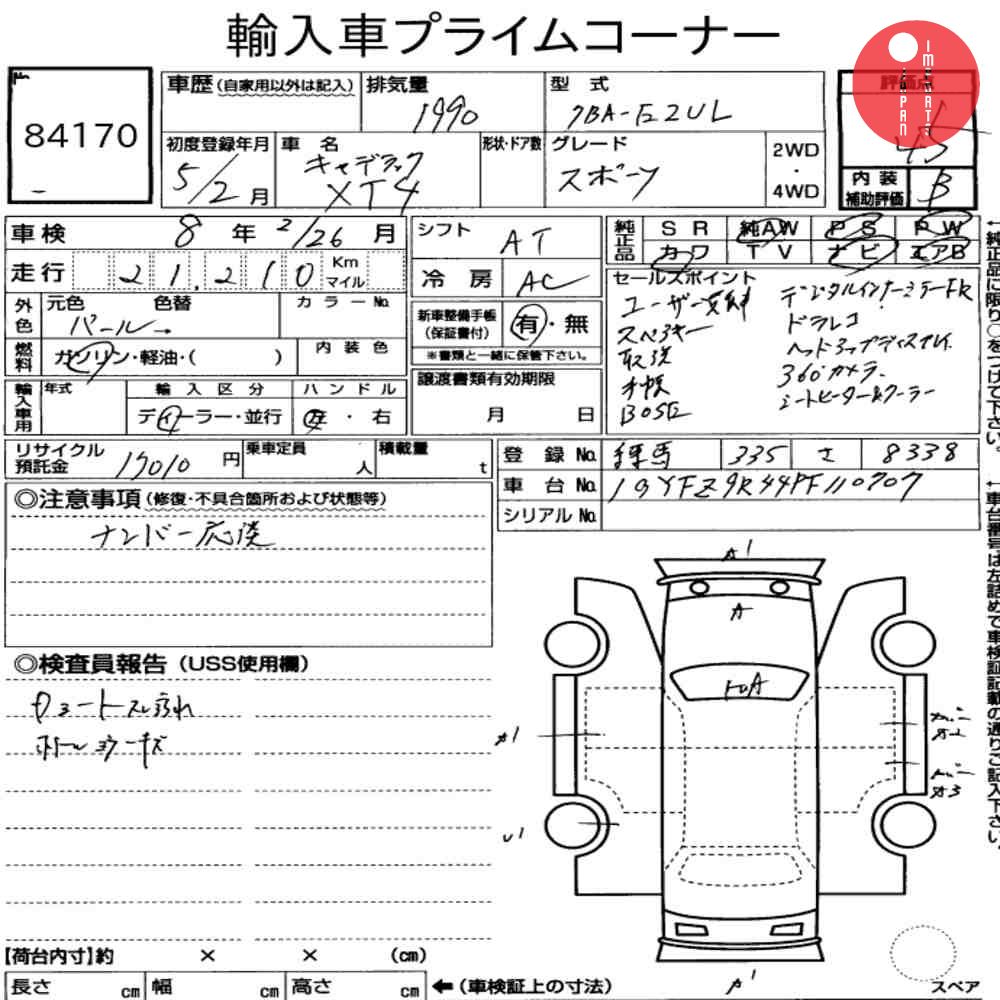 輸入車プライムコーナー
IMPORTS
JAPAN
84170
車歴(自家用以外は記入)
排気量
1990
型式
7BA-E2UL
評価点
4.5
初度登録年月
5/2月
車名
キャデラック
XT4
形状・ドア数
グレード
スポーツ
2WD
・
4WD
内装
補助評価
B
車検
8年2/26月
走行
21,210
Km
マイル
外色
元色
色替
カラーNo.
パール→
燃料
ガソリン・軽油・( )
内装色
輸入車用
年式
輸入区分
ハンドル
ディーラー・並行
左・右
シフト
AT
冷房
AC
新車整備手帳
(保証書付)
有・無
※書類と一緒に保管下さい。
譲渡書類有効期限
月 日
純正品
SR 純AW PS PW
カワ TV ナビ エアB
セールスポイント
ユーザー買取
スペアキー
取説
手帳
BOSE
デジタルインナーミラーFR
ドラレコ
ヘッドアップディスプレイ
360°カメラ
シートヒーター&クーラー
←純正品に限り○をつけて下さい。
リサイクル
預託金
17010円
乗車定員
人
積載量
t
登録No.
練馬 335 さ 8338
車台No.
1GYFZ9R44PF110707
シリアルNo.
←車台番号は左詰めで車検証記載の通りご記入下さい。
◎注意事項(修復・不具合箇所および状態等)
ナンバー応談
◎検査員報告(USS使用欄)
シートスレ汚れ
ホイールキズ
A1
A
トビA
A1
U1
A2
A3
A1
【荷台内寸】約 × × (cm)
長さ cm 幅 cm 高さ cm
←(車検証上の寸法)
スペア